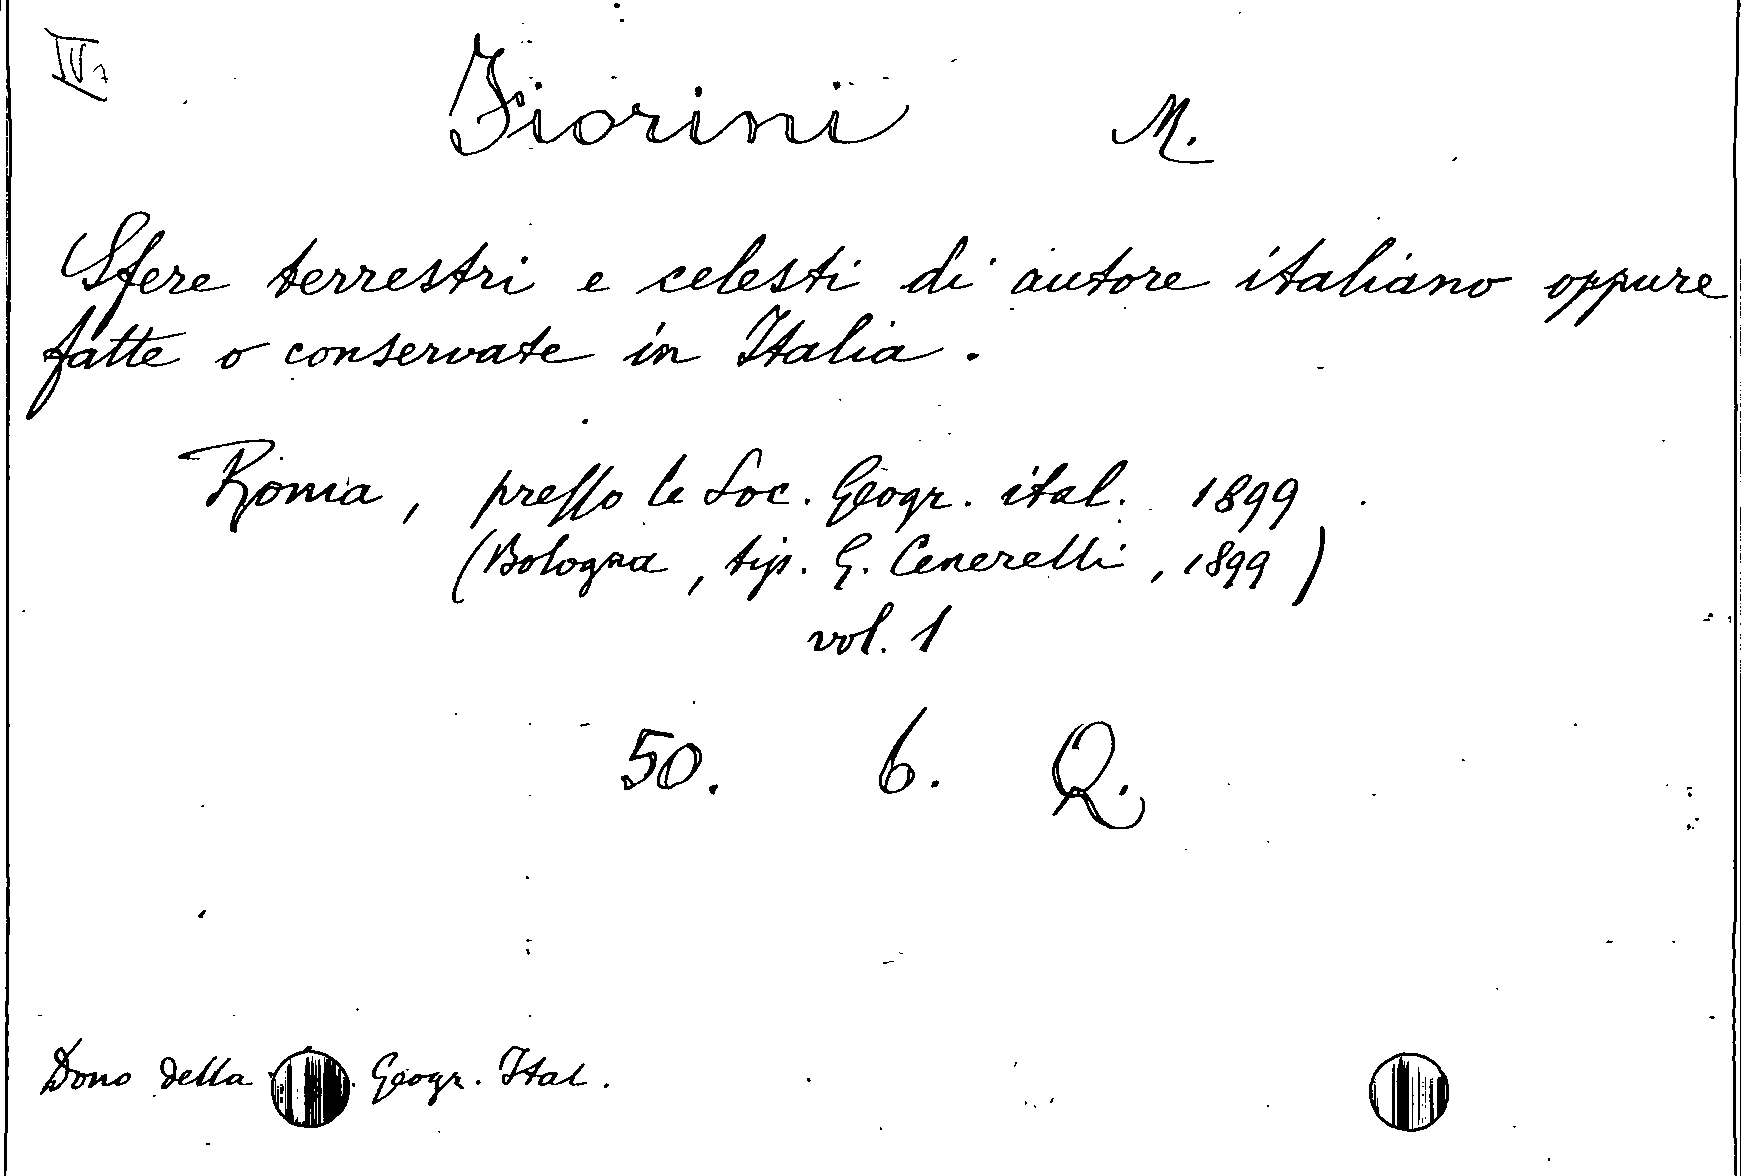 IV
Fiorini M.
Sfere terrestri e celesti di autore italiano oppure
fatte o conservate in Italia.
Roma, presso la Soc. Geogr. ital. 1899
(Bologna, tip. G. Cenerelli, 1899)
vol. 1
50. 6. Q.
Dono della Geogr. Ital.